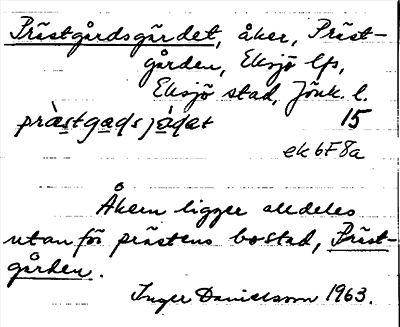 Prästgårdsgärdet, åker, Präst-
gården, Eksjö lfs,
Eksjö stad, Jönk. l.
präs̲tga̲dsjä̀da̲t 15
ek 6F8a
Åkern ligger alldeles
utanför prästens bostad, Präst-
gården.
Inger Danielsson 1963.